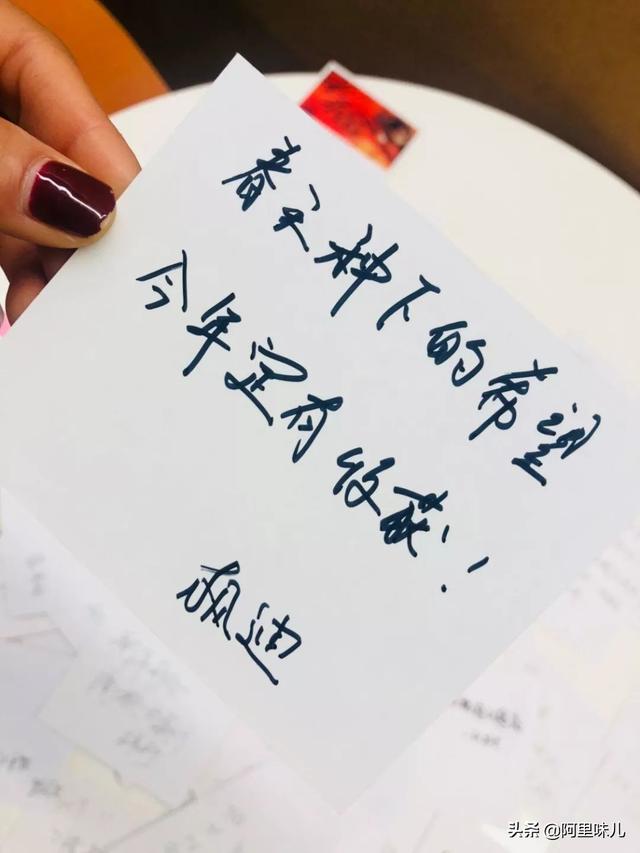 春天种下的希望
今年定有收获！
枫迪
头条 @阿里味儿